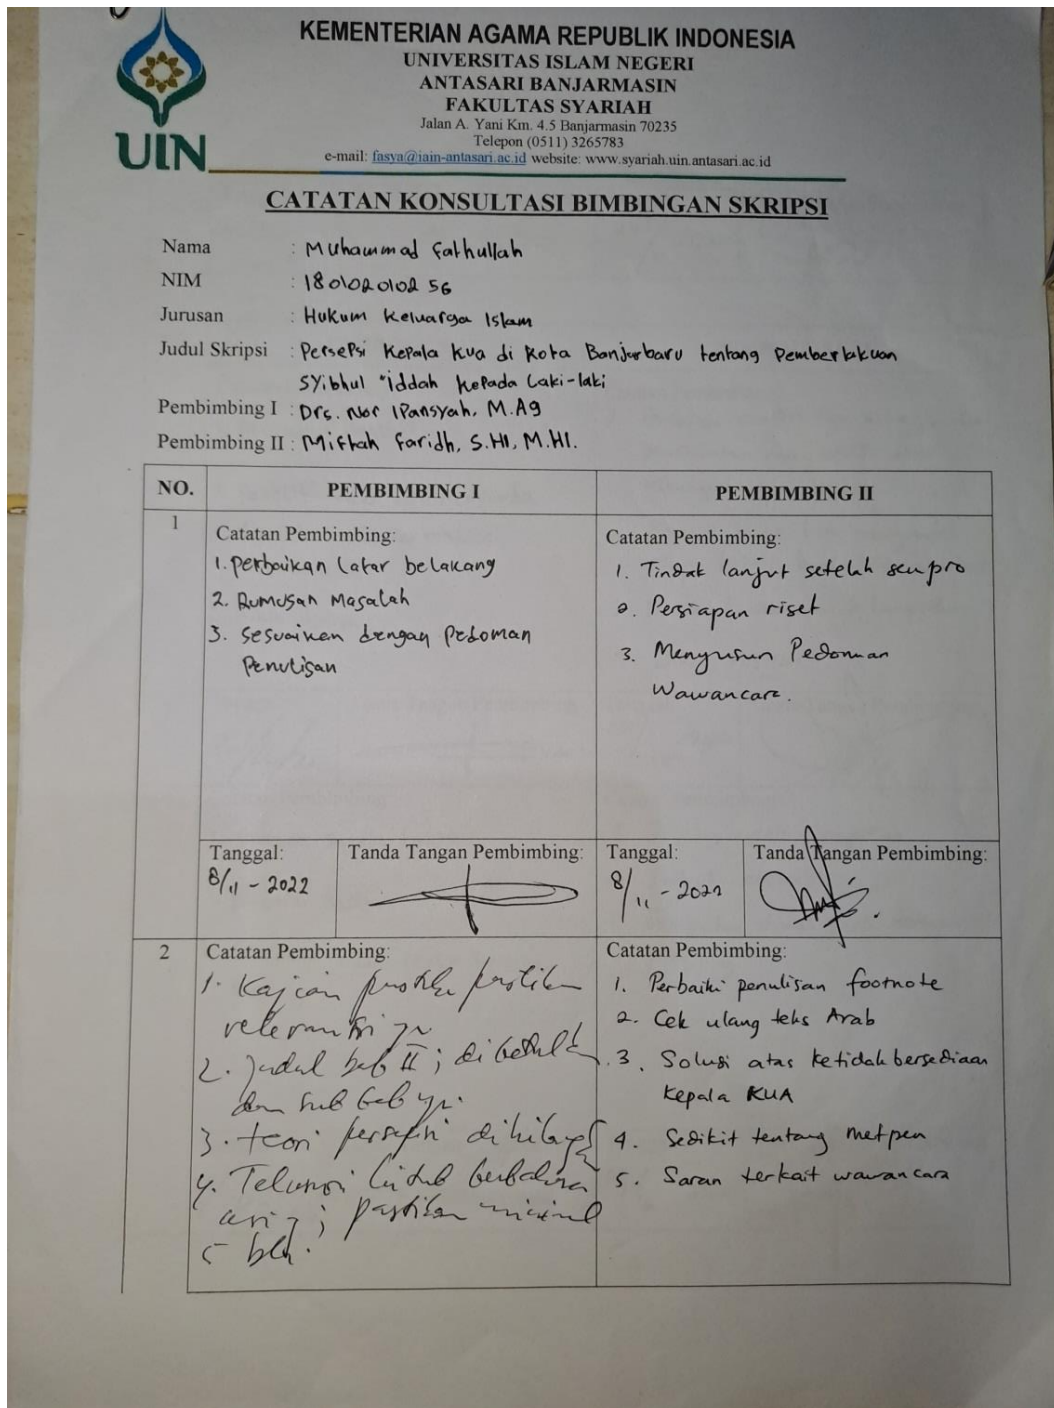 KEMENTERIAN AGAMA REPUBLIK INDONESIA
UNIVERSITAS ISLAM NEGERI
ANTASARI BANJARMASIN
FAKULTAS SYARIAH
Jalan A. Yani Km. 4.5 Banjarmasin 70235
Telepon (0511) 3265783
e-mail: fasya@iain-antasari.ac.id website: www.syariah.uin.antasari.ac.id
UIN
CATATAN KONSULTASI BIMBINGAN SKRIPSI
Nama : Muhammad Fathullah
NIM : 180102010256
Jurusan : Hukum Keluarga Islam
Judul Skripsi : Persepsi Kepala Kua di Kota Banjarbaru tentang Pemberlakuan
Syibhul 'Iddah Kepada Laki-laki
Pembimbing I : Drs. Nor Ipansyah, M.Ag
Pembimbing II : Miftah Faridh, S.HI, M.HI.
NO. PEMBIMBING I PEMBIMBING II
1
Catatan Pembimbing:
1. Perbaikan Latar belakang
2. Rumusan Masalah
3. Sesuaikan dengan Pedoman
Penulisan
Catatan Pembimbing:
1. Tindak lanjut setelah sempro
2. Persiapan riset
3. Menyusun Pedoman
Wawancara.
Tanggal: Tanda Tangan Pembimbing:
8/11 - 2022
Tanggal: Tanda Tangan Pembimbing:
8/11 - 2022
2
Catatan Pembimbing:
1. Kajian pustaka pastikan
relevansi
2. Judul bab II ;
dan sub bab
3. teori persepsi
4. Telusuri
asing ; pastikan minimal
5
Catatan Pembimbing:
1. Perbaiki penulisan footnote
2. Cek ulang teks Arab
3. Solusi atas ketidakbersediaan
Kepala KUA
4. Sedikit tentang metpen
5. Saran terkait wawancara